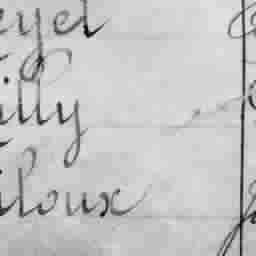 eyel
illy
iloux